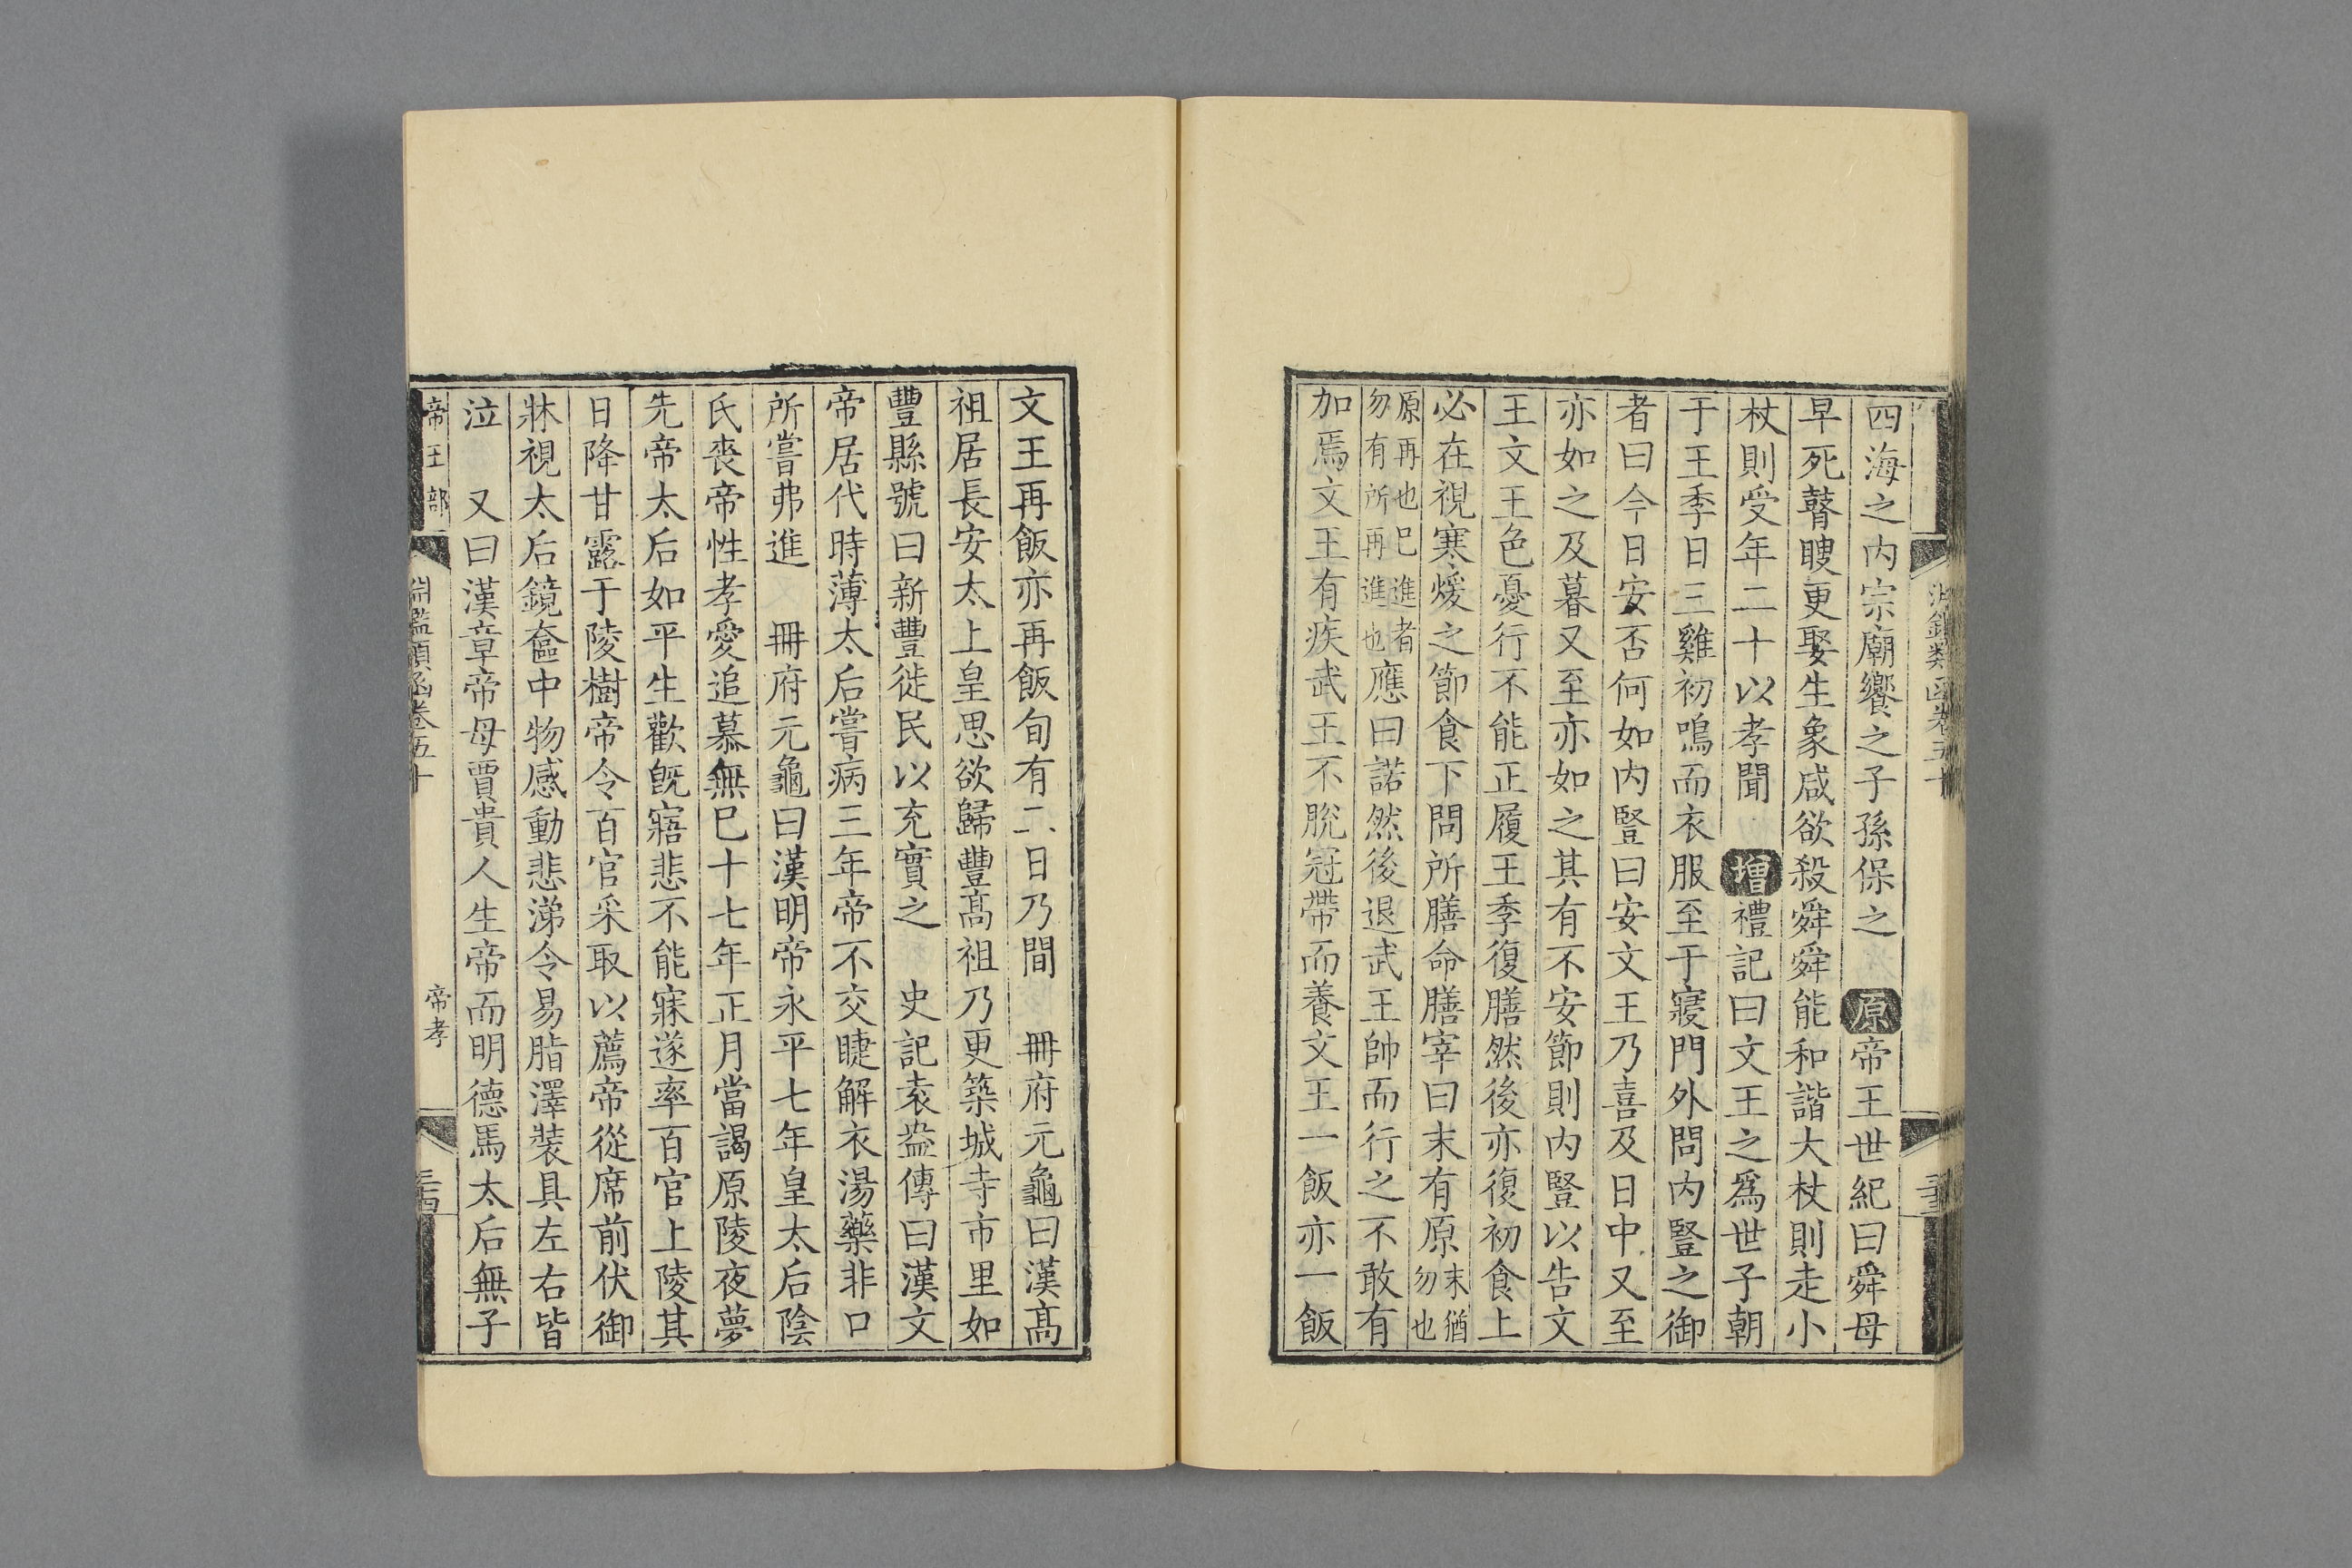 四海之內宗廟饗之子孫保之　原帝王世紀曰舜母
早死瞽瞍更娶生象咸欲殺舜舜能和諧大杖則走小
杖則受年二十以孝聞　增禮記曰文王之爲世子朝
于王季日三雞初鳴而衣服至于寢門外問內豎之御
者曰今日安否何如內豎曰安文王乃喜及日中又至
亦如之及暮又至亦如之其有不安節則內豎以告文
王文王色憂行不能正履王季復膳然後亦復初食上
必在視寒煖之節食下問所膳命膳宰曰末有原末猶勿也
原再也巳進者勿有所再進也應曰諾然後退武王帥而行之不敢有
加焉文王有疾武王不脫冠帶而養文王一飯亦一飯
文王再飯亦再飯旬有二日乃間　冊府元龜曰漢髙
祖居長安太上皇思欲歸豐髙祖乃更築城寺市里如
豐縣號曰新豐徙民以充實之　史記袁盎傳曰漢文
帝居代時薄太后嘗病三年帝不交睫解衣湯藥非口
所嘗弗進　冊府元龜曰漢明帝永平七年皇太后陰
氏喪帝性孝愛追慕無巳十七年正月當謁原陵夜夢
先帝太后如平生歡旣寤悲不能寐遂率百官上陵其
日降甘露于陵樹帝令百官采取以薦帝從席前伏御
牀視太后鏡奩中物感動悲涕令易脂澤裝具左右皆
泣　又曰漢章帝母賈貴人生帝而明德馬太后無子
帝王部　淵鑑類函卷五十　帝孝　三十四